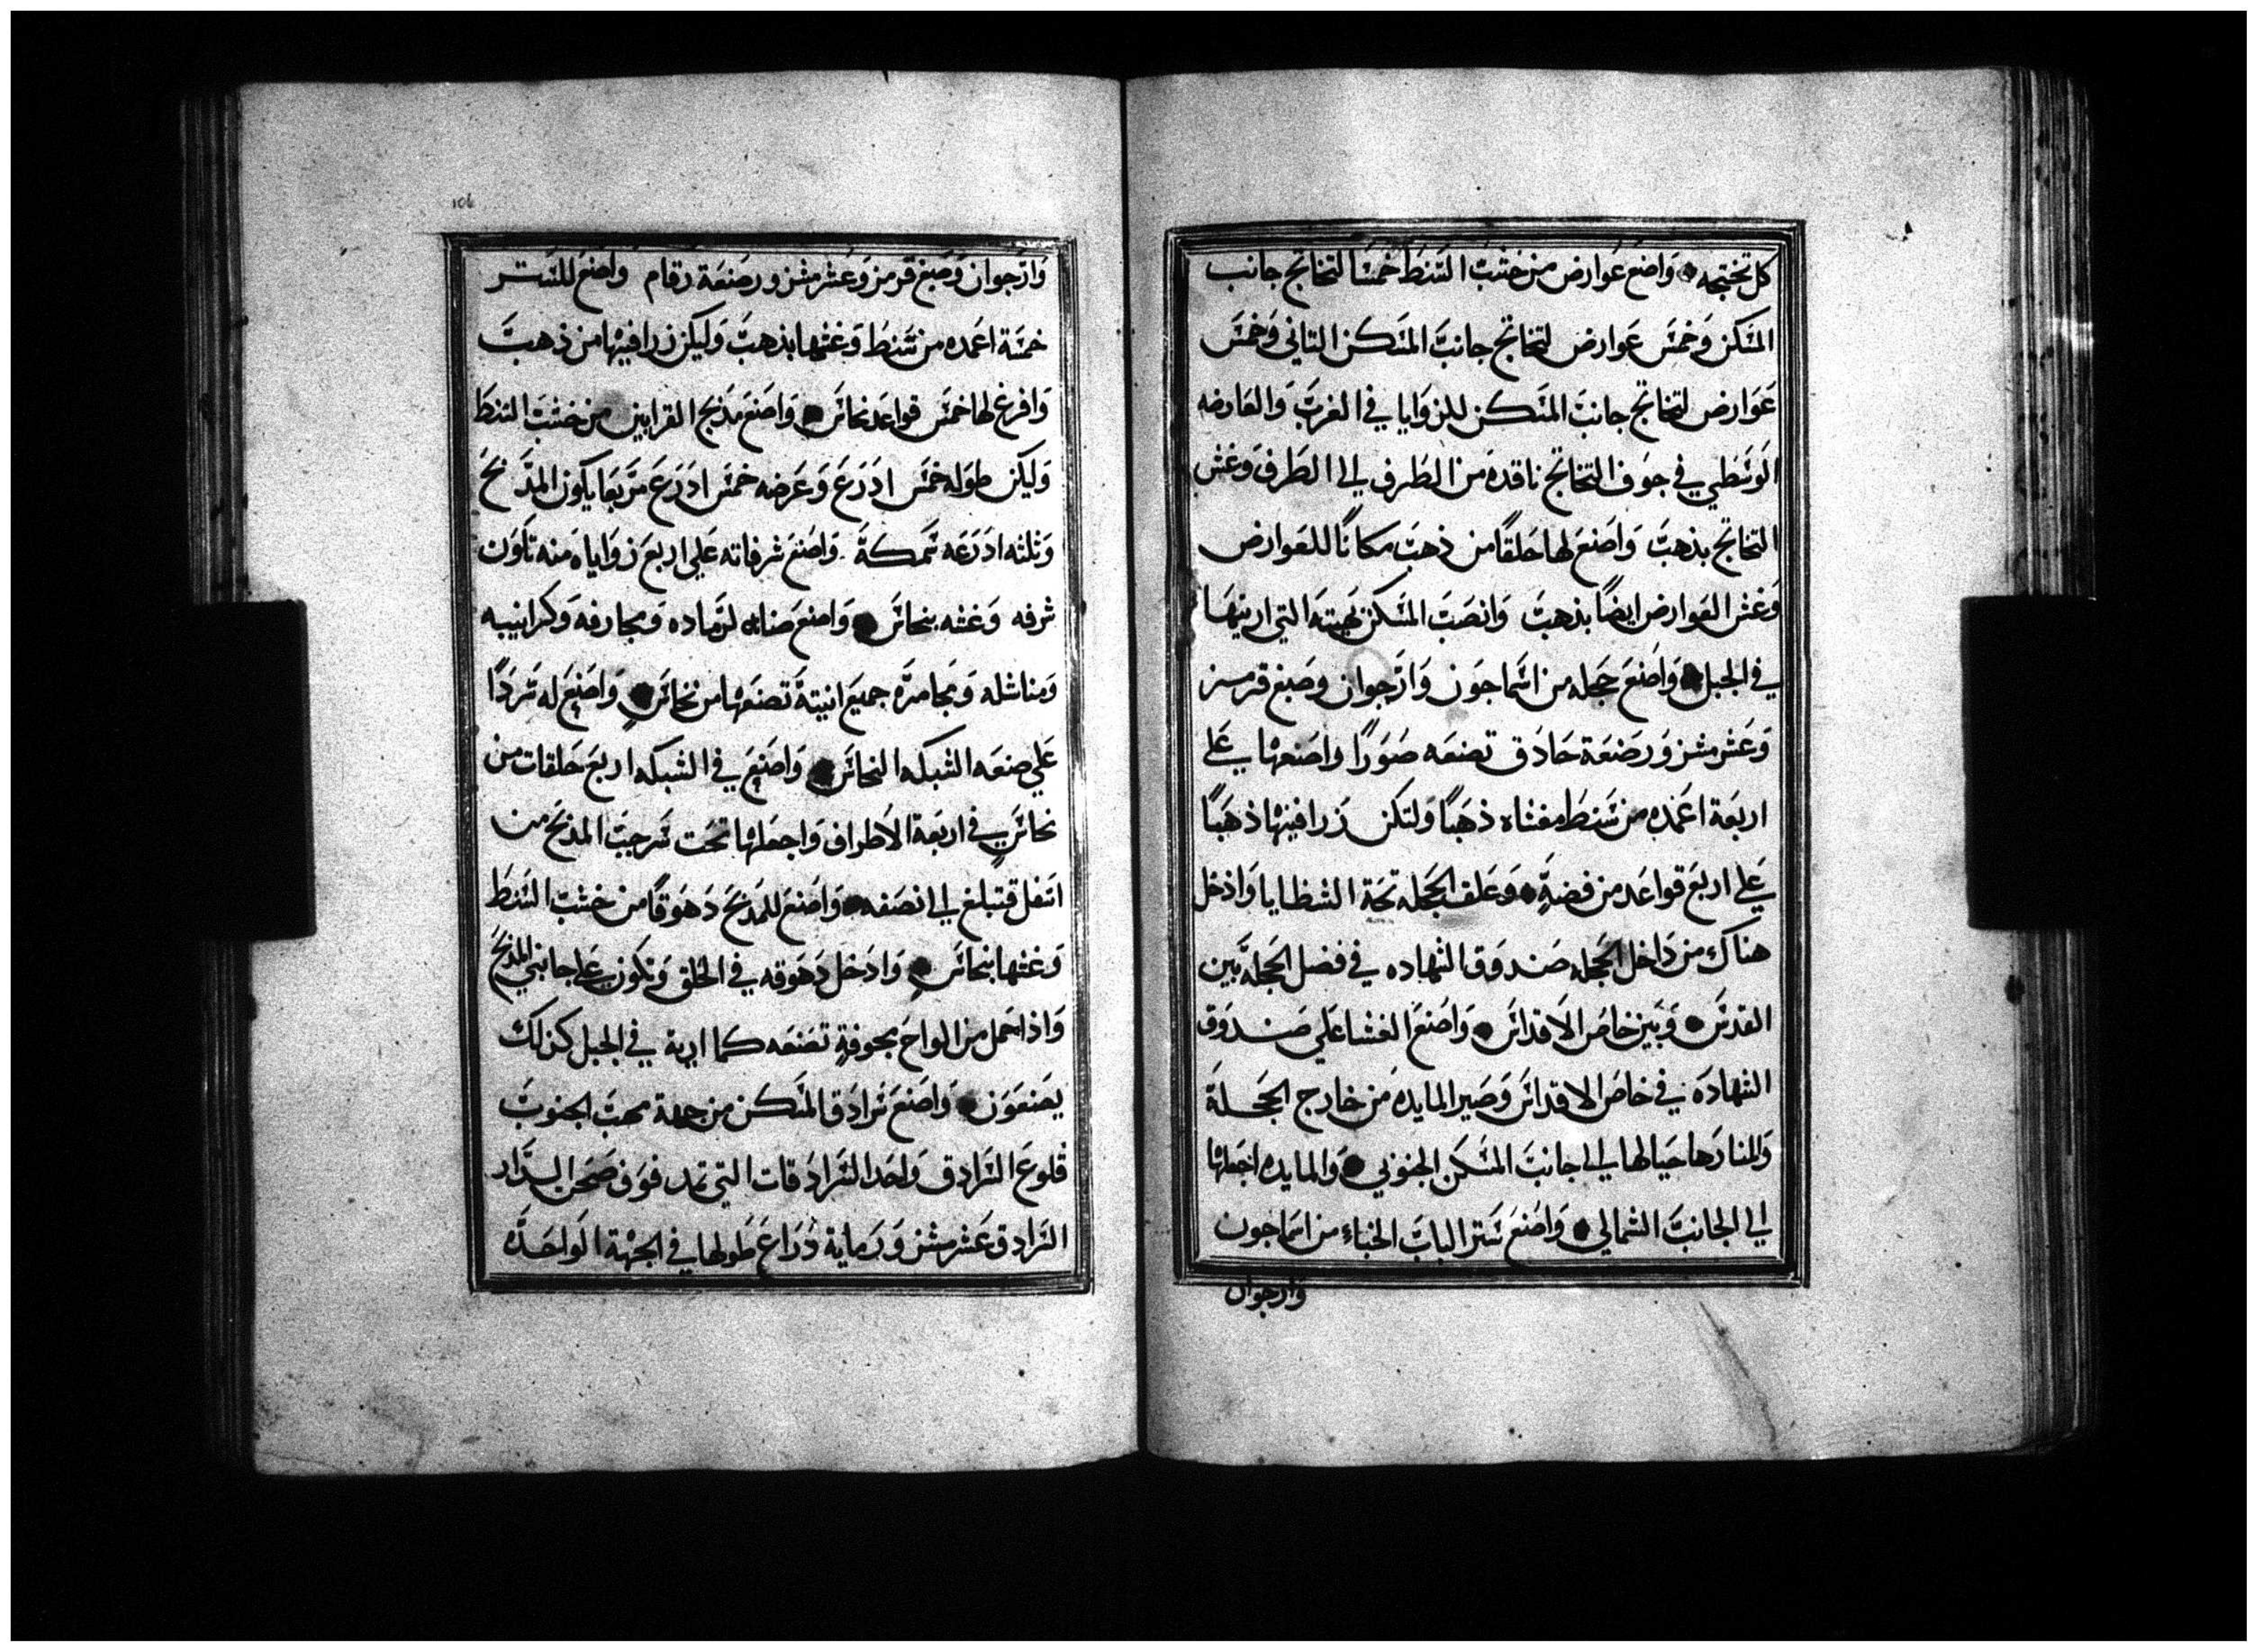 كل تختجه • واصنع عوارض من خشب السنط خمسا لتخاتج جانب
المسكن وخمس عوارض لتخاتج جانب المسكن التاني وخمس
عوارض لتخاتج جانب المسكن للزوايا في الغرب والعارضه
الوسطي في جوف التخاتج نافده من الطرف الي الطرف وغش
التخاتج بذهب واصنع لها حلقًا من ذهب مكانًا للعوارض
وغش العوارض ايضًا بذهب وانصب المسكن بهيته التي اريتها
في الجبل • واصنع حجله من اسماجون وارجوان وصبغ قرمز
وعشر مشزور صنعة حادق تصنعه صورًا واصنعها علي
اربعة اعمده من سنط مغشاه ذهبًا ولتكن زرافينها ذهبًا
علي اربع قواعد من فضةٍ • وعلق الحجله تحة الشظايا وادخل
هناك من داخل الحجله صندوق الشهاده في فصل الحجلة بين
القدس • وبين خاص الاقداس • واصنع الغشا علي صندوق
الشهاده في خاص الاقداس وصير المايده من خارج الحجلة
والمنارة حيالها الي جانب المسكن الجنوبي • والمايده اجعلها
الي الجانب الشمالي • واصنع ستر الباب الخباء من اسماجون
وارجوان
وارجوان وصبغ قرمز وعشر مشزور صنعة رقام واصنع للستر
خمسة اعمده من سنط وغشها بذهب وليكن زرافينها من ذهب
وافرغ لها خمس قواعد نحاس • واصنع مذبح القرابين من خشب السنط
وليكن طوله خمس ادرع وعرضه خمس ادرع مربعا يكون المذبح
وثلثه ادرعه سمكة واصنع شرفاته علي اربع زواياه منه تكون
شرفه وغشه بنحاس • واصنع صنانه لرماده ومجارفه وكرانيبه
ومناشله ومجامره جميع انيتة تصنعها من نحاس • واصنع له سردًا
علي صنعه الشبكه النحاس • واصنع في الشبكه اربع حلقات من
نحاس في اربعة الاطراف واجعلها تحت سرجب المدبح من
اسفل فتبلغ الي نصفه • واصنع للمدبح دهوقًا من خشب السنط
وغشها بنحاس • وادخل دهوقه في الحلق وتكون علي جانبي المدبح
واذا حمل من الواح مجوفةٍ تصنعه كما اريه في الجبل كذلك
يصنعون • واصنع سرادق المسكن من جهة مهب الجنوب
قلوع السرادق واحد السرادقات التي تمد فوق صحن الدار
السرادق عشر مشزور مايه ذراع طولها في الجهة الواحده